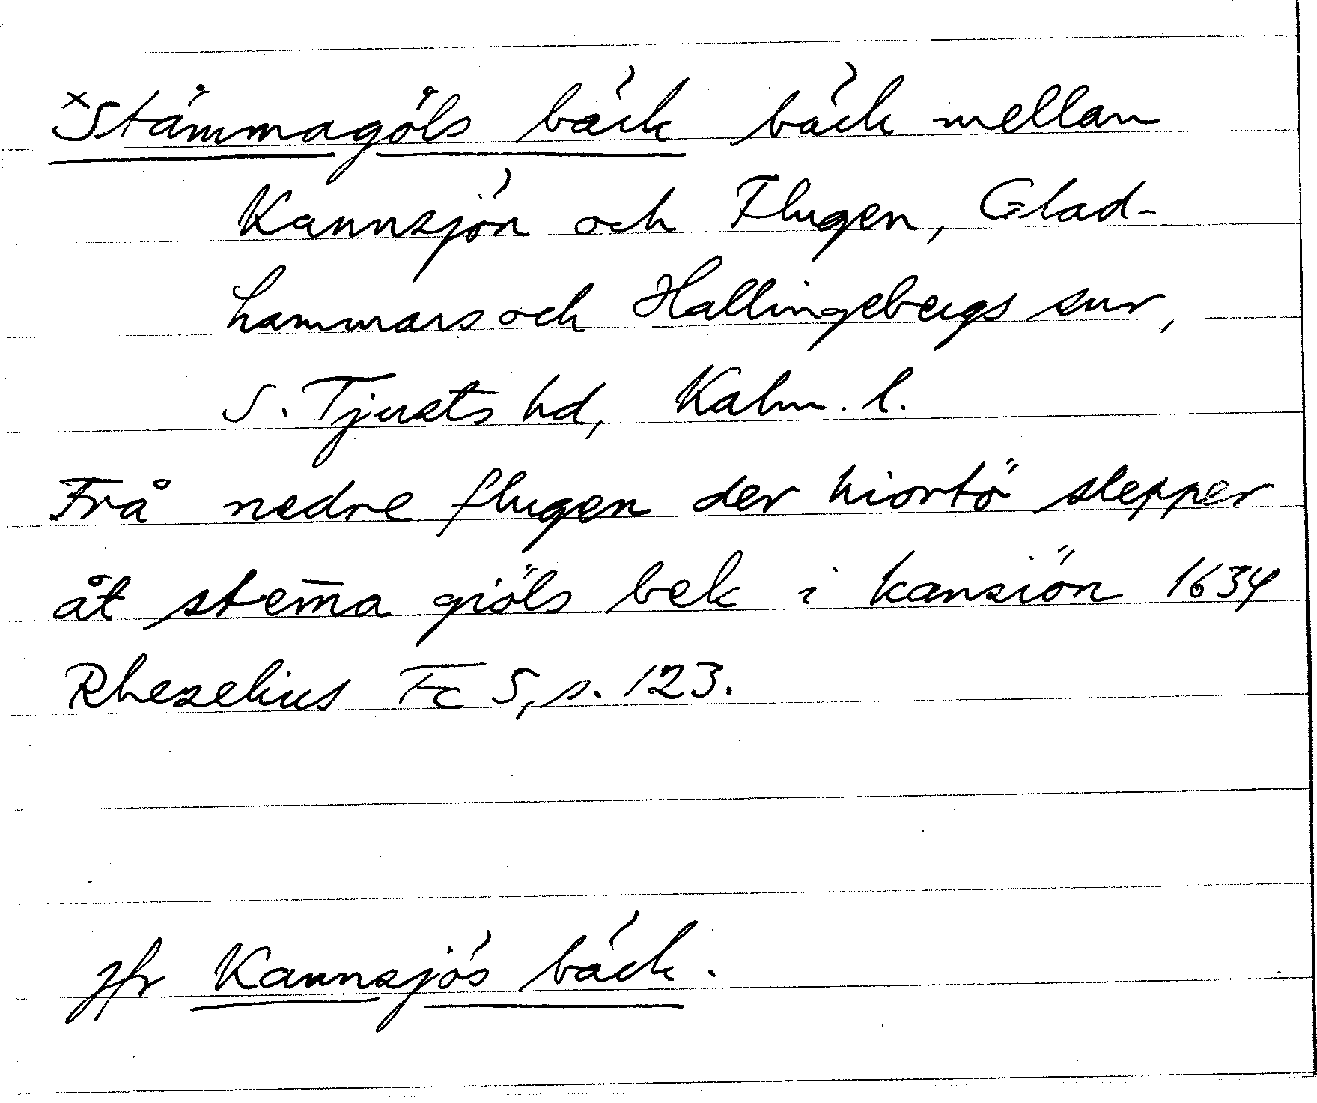 ×Stämmagöls bäck bäck mellan
Kannsjön och Flugen, Glad-
hammars och Hallingebergs snr,
S. Tjusts hd, Kalm. l.
Frå nedre flugen der hiortö slepper
åt stem̄a giöls bek i kansiön 1634
Rhezelius Fc 5, s. 123.
Jfr Kannsjös bäck.